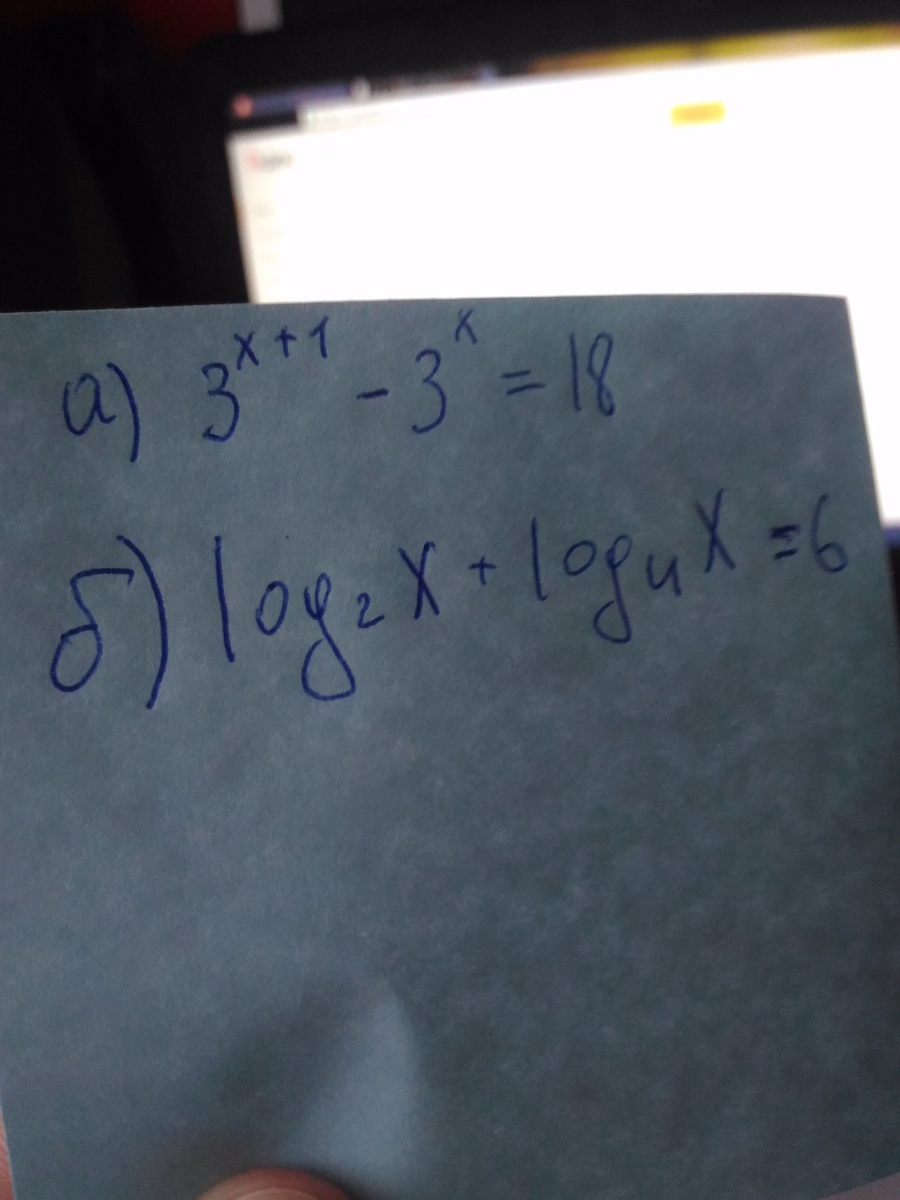 а) 3^{x+1} - 3^x = 18
б) log₂X + log₄X = 6